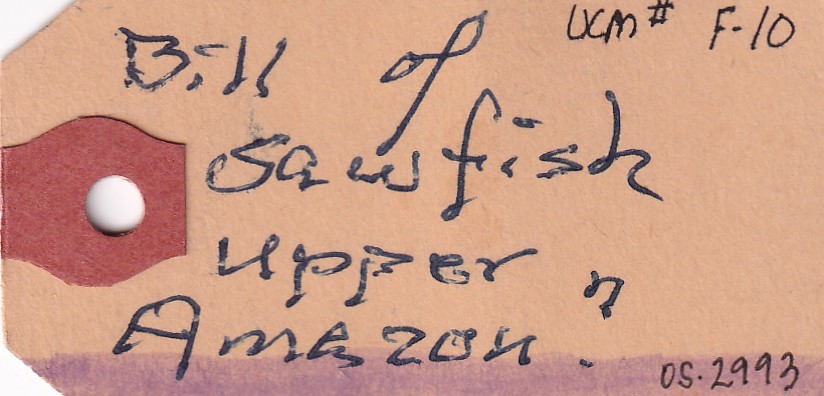 UCM# F-10
Bill of
Sawfish
upper
Amazon?
OS.2993